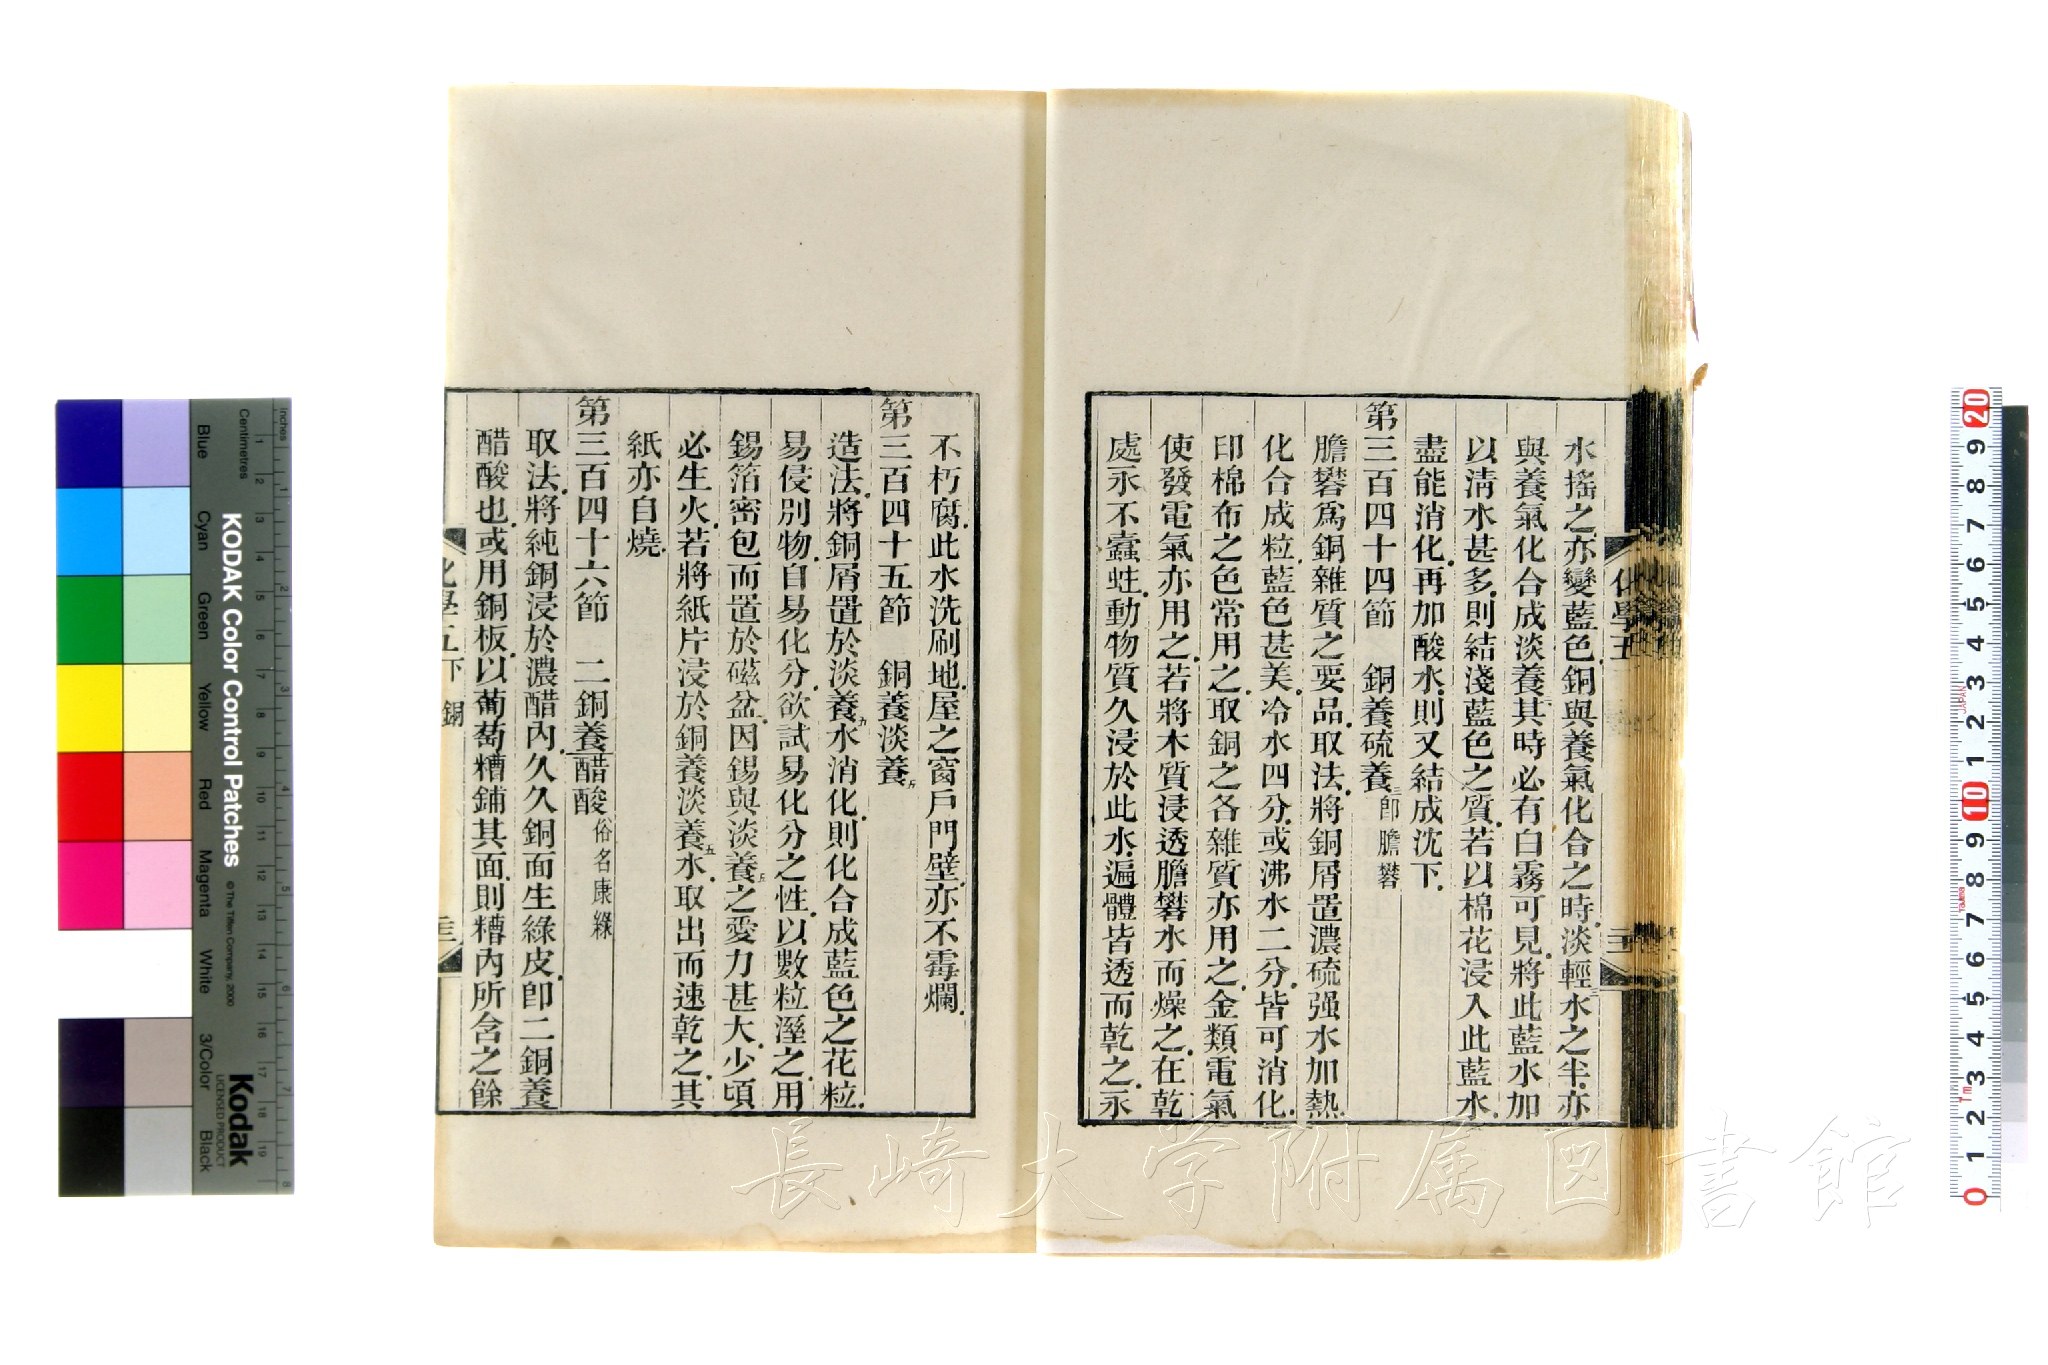 水搖之亦變藍色銅與養氣化合之時淡輕三水之半亦
與養氣化合成淡養其時必有白霧可見將此藍水加
以淸水甚多則結淺藍色之質若以棉花浸入此藍水
盡能消化再加酸水則又結成沈下
第三百四十四節 銅養硫養三卽膽礬
膽礬爲銅雜質之要品取法將銅屑置濃硫强水加熱
化合成粒藍色甚美冷水四分或沸水二分皆可消化
印棉布之色常用之取銅之各雜質亦用之金類電氣
使發電氣亦用之若將木質浸透膽礬水而燥之在乾
處永不蠹蛀動物質久浸於此水遍體皆透而乾之永
化學五
二十二
不朽腐此水洗刷地屋之窗戶門壁亦不霉爛
第三百四十五節 銅養淡養五
造法將銅屑置於淡養九水消化則化合成藍色之花粒
易侵別物自易化分欲試易化分之性以數粒溼之用
錫箔密包而置於磁盆因錫與淡養五之愛力甚大少頃
必生火若將紙片浸於銅養淡養五水取出而速乾之其
紙亦自燒
第三百四十六節 二銅養醋酸俗名康綠
取法將純銅浸於濃醋內久久銅面生綠皮卽二銅養
醋酸也或用銅板以葡萄糟鋪其面則糟內所含之餘
化學五下 銅
長崎大学附属図書館
KODAK Color Control Patches
© The Tiffen Company, 2000
Kodak
LICENSED PRODUCT
Inches
Centimetres
Blue
Cyan
Green
Yellow
Red
Magenta
White
3/Color
Black
1 2 3 4 5 6 7 8 9 10 11 12 13 14 15 16 17 18 19
1 2 3 4 5 6 7 8
0 1 2 3 4 5 6 7 8 9 10 1 2 3 4 5 6 7 8 9 20
JAPAN